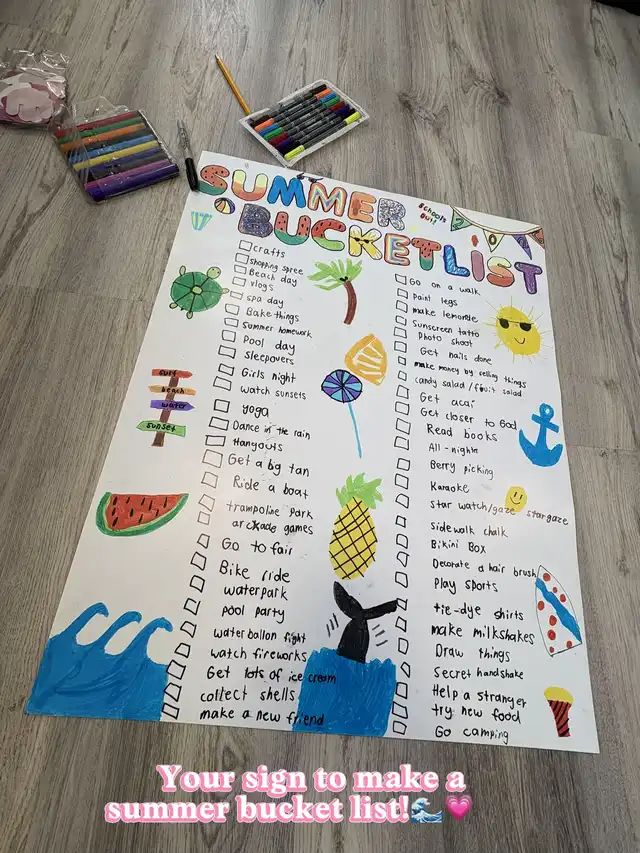 SUMMER
BUCKETLIST
Schools
Out!
2 0
surf
beach
water
sunset
crafts
shopping spree
Beach day
vlogs
spa day
Bake things
Summer homework
Pool day
Sleepovers
Girls night
watch sunsets
yoga
Dance in the rain
Hangouts
Get a big tan
Ride a boat
trampoline park
arckade games
Go to fair
Bike ride
waterpark
pool party
water ballon fight
watch fireworks
Get lots of ice cream
collect shells
make a new friend
Go on a walk
Paint legs
make lemonade
Sunscreen tatto
Photo shoot
Get nails done
make money by selling things
candy salad / fruit salad
Get acai
Get closer to God
Read books
All-nights
Berry picking
Karaoke
star watch/gaze
stargaze
sidewalk chalk
Bikini Box
Decorate a hair brush
Play sports
tie-dye shirts
make milkshakes
Draw things
Secret handshake
Help a stranger
try new food
Go camping
Your sign to make a
summer bucket list!🌊💗